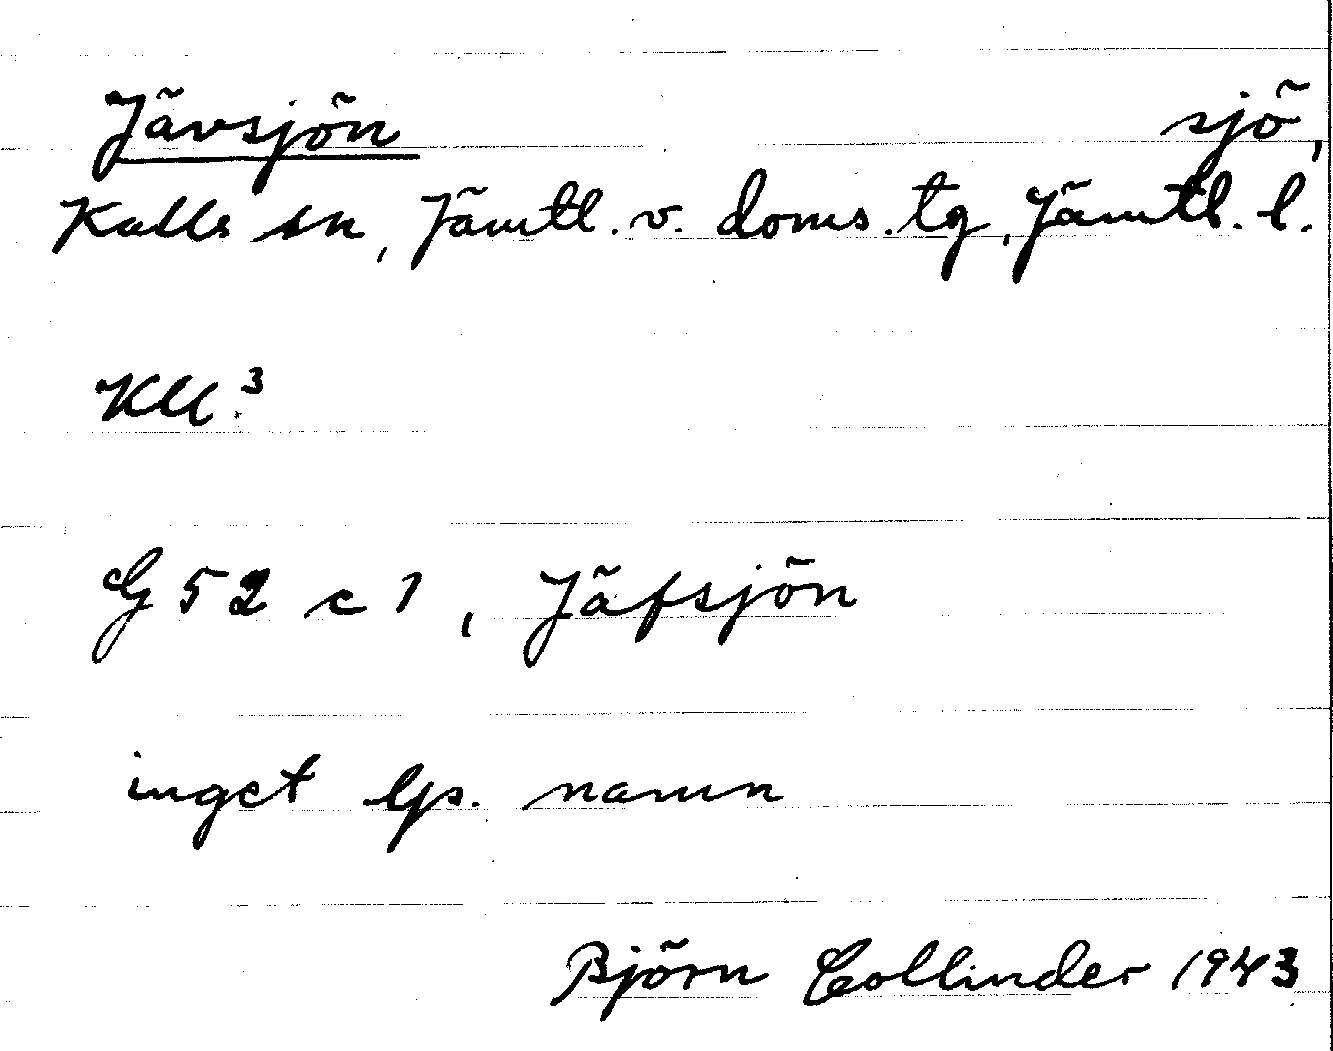 Jävsjön sjö,
Kalls sn, Jämtl. v. doms. tg, Jämtl. l.
KU.³
G 52 c 1, Jäfsjön
inget lp. namn
Björn Collinder 1943